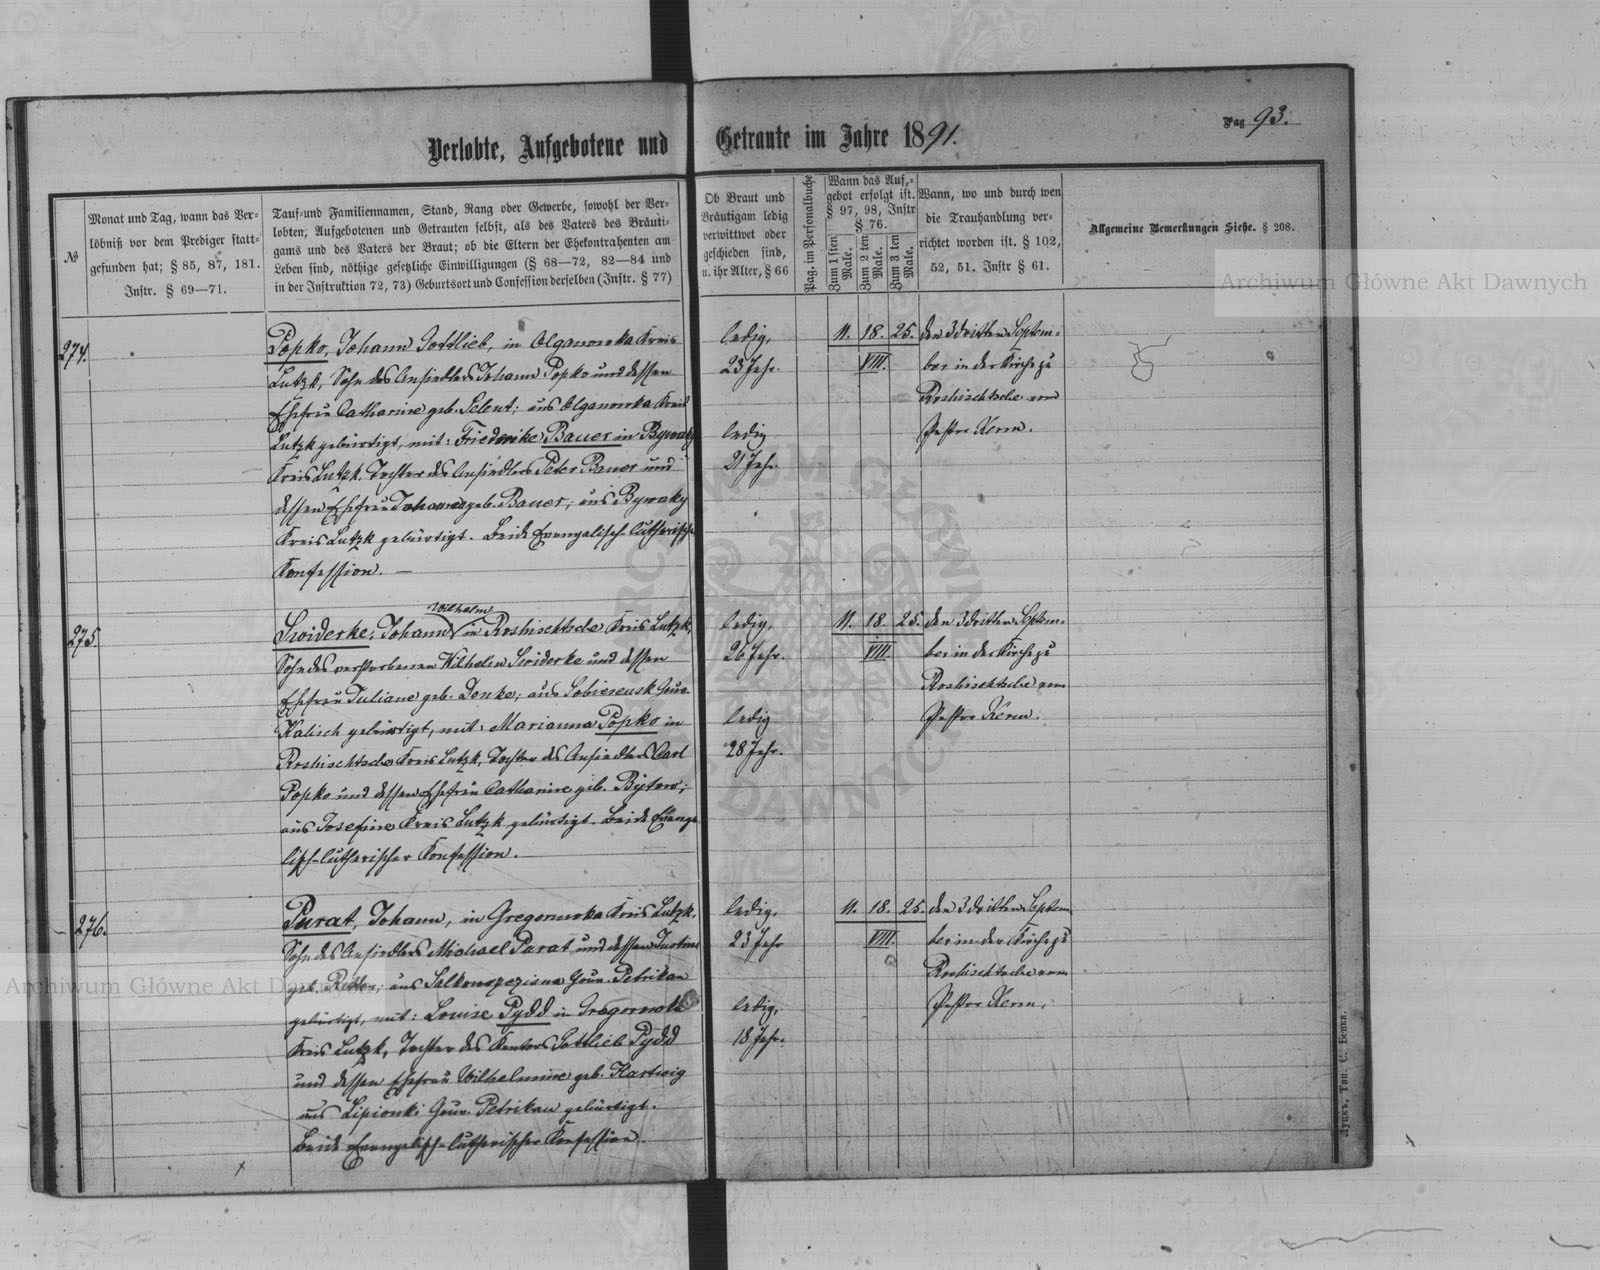 Verlobte, Aufgebotene und Getraute im Jahre 1891.
Pag 93.
№
Monat und Tag, wann das Ver-
löbniß vor dem Prediger statt-
gefunden hat; § 85, 87, 181.
Instr. § 69—71.
Tauf- und Familiennamen, Stand, Rang oder Gewerbe, sowohl der Ver-
lobten, Aufgebotenen und Getrauten selbst, als des Vaters des Bräuti-
gams und des Vaters der Braut; ob die Eltern der Ehekontrahenten am
Leben sind, nöthige gesetzliche Einwilligungen (§ 68—72, 82—84 und
in der Instruktion 72, 73) Geburtsort und Confession derselben (Instr. § 77)
Ob Braut und
Bräutigam ledig
verwittwet oder
geschieden sind,
u. ihr Alter, § 66
Pag. im Personalbuche
Wann das Auf-
gebot erfolgt ist.
§ 97, 98, Instr
§ 76.
Zum 1 sten Male.
Zum 2 ten Male.
Zum 3 ten Male.
Wann, wo und durch wen
die Trauhandlung ver-
richtet worden ist. § 102,
52, 51. Instr § 61.
Allgemeine Bemerkungen Siehe. § 208.
274.
Popko, Johann Gottlieb, in Olganowka Kreis
Lutzk, Sohn des Ansiedlers Johann Popko und dessen
Ehefrau Catharine geb. Selent; aus Olganowka Kreis
Lutzk gebürtigt, mit: Friederike Bauer in Bywaky
Kreis Lutzk, Tochter des Ansiedlers Peter Bauer und
dessen Ehefrau Johanna geb. Bauer; aus Bywaky
Kreis Lutzk gebürtigt. Beide Evangelisch-lutherischer
Konfession. —
ledig,
23 Jahr.
ledig
21 Jahr.
11. 18. 25.
VIII.
den 3 dritten Septem-
ber in der Kirche zu
Roshischtsche vom
Pastor Kerm.
275.
Wilhelm
Swiderke, Johann in Roshischtsche Kreis Lutzk,
Sohn des verstorbenen Wilhelm Swiderke und dessen
Ehefrau Juliane geb. Denke; aus Gouv.
Kalisch gebürtigt, mit: Marianna Popko in
Roshischtsche Kreis Lutzk, Tochter des Ansiedlers Carl
Popko und dessen Ehefrau Catharine geb. Bytow;
aus Josefine Kreis Lutzk gebürtigt. Beide Evange-
lisch-lutherischer Konfession.
ledig,
26 Jahr.
ledig
28 Jahr.
11. 18. 25.
VIII.
den 3 dritten Septem-
ber in der Kirche zu
Roshischtsche vom
Pastor Kerm.
276.
Purat, Johann, in Gregorowka Kreis Lutzk,
Sohn des Ansiedlers Michael Purat und dessen
geb. Ritter; aus Gouv. Petrikau
gebürtigt, mit: Louise Pydd in Gregorowka
Kreis Lutzk, Tochter des Kantors Gottlieb Pydd
und dessen Ehefrau Wilhelmine geb. Hartwig
aus Lipionki Gouv. Petrikau gebürtigt.
Beide Evangelisch-lutherischer Konfession.
ledig,
23 Jahr
ledig,
18 Jahr.
11. 18. 25.
VIII.
den 3 dritten Septem-
ber in der Kirche zu
Roshischtsche vom
Pastor Kerm.
Луцкъ, Тип. С. Бенка.
Archiwum Główne Akt Dawnych
Archiwum Główne Akt Dawnych